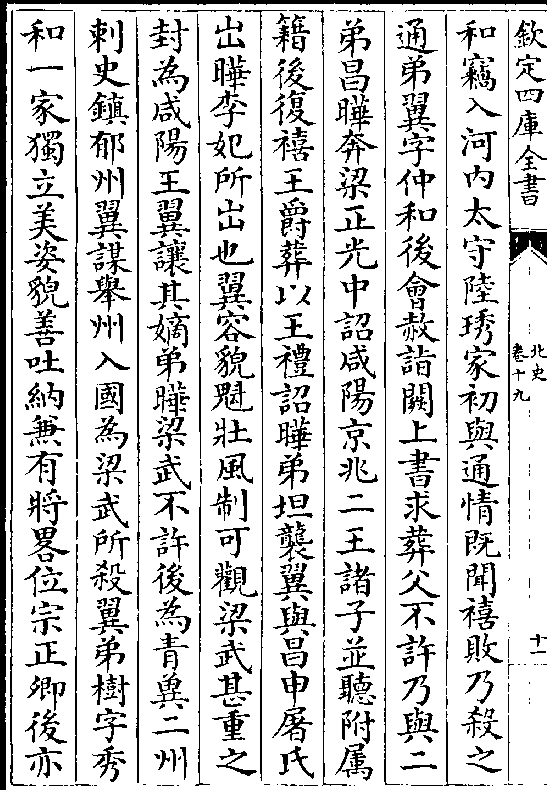 欽定四庫全書
北史
卷十九
十一
和竊入河内太守陸琇家初與通情既聞禧敗乃殺之
通弟翼字仲和後會赦詣闕上書求葬父不許乃與二
弟昌曄奔梁正光中詔咸陽京兆二王諸子並聽附属
籍後復禧王爵葬以王禮詔曄弟坦襲翼與昌申屠氏
出曄李妃所出也翼容貌魁壯風制可觀梁武甚重之
封為咸陽王翼讓其嫡弟曄梁武不許後為青兾二州
刺史鎮郁州翼謀舉州入國為梁武所殺翼弟樹字秀
和一家獨立美姿貌善吐納兼有將畧位宗正卿後亦